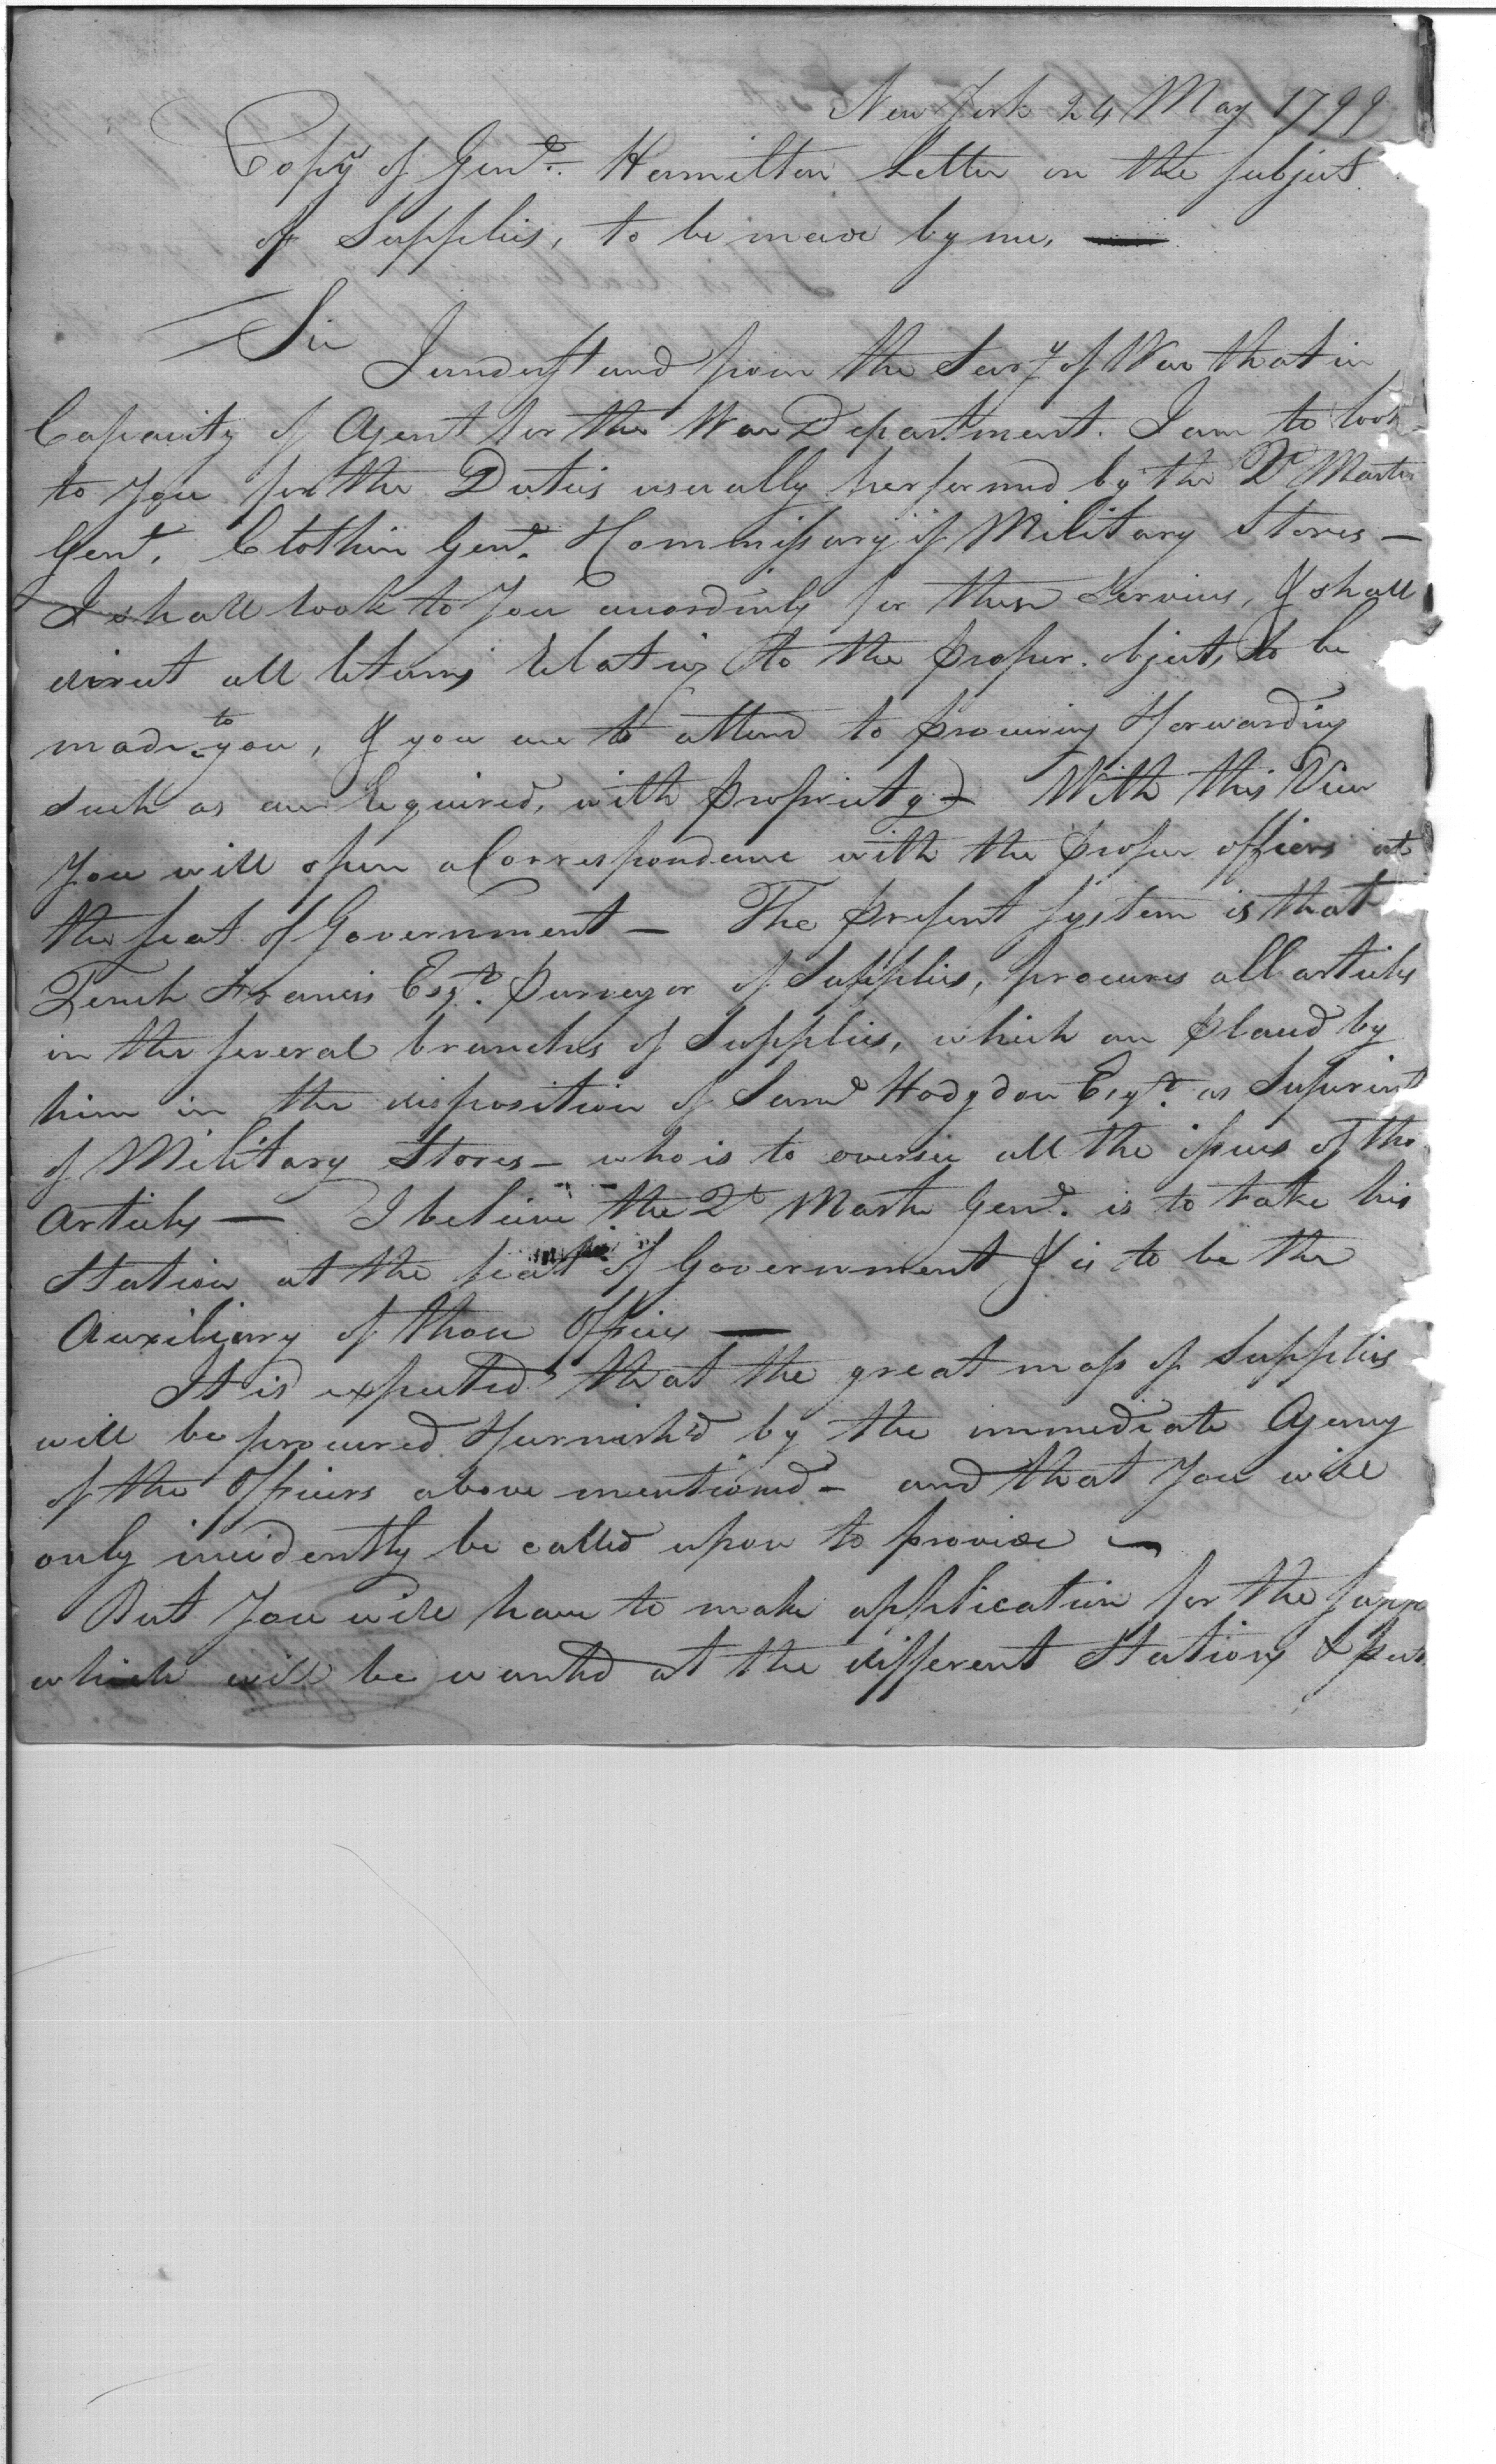 New York 24 May 1799
Copy of Genl. Hamilton Letter on the subject
of Supplies, to be made by me. —
Sir
I understand from the Secry of War that in
Capacity of Agent for the War Department. I am to look
to you for the Duties usually performed by the Qr Master
Genl. Clothin Genl. & Commissary of Military Stores —
I shall look to You accordinly for these Services, & shall
direct all returns relating to the proper objects, to be
made to you, & you are to attend to procuring & forwarding
such as are required, with propriety — With this View
You will open a Correspondence with the proper officers at
the seat of Government — The present system is that
Tench Francis Esqr. purveyor of Supplies, procures all articles
in the several branches of Supplies, which are placed by
him in the disposition of Saml Hodgdon Esqr. as Superint
of Military Stores — who is to oversee all the issues of tho
Articles — I believe the Qr Master Genl. is to take his
Station at the seat of Government & is to be the
Auxiliary of those Offices —
It is expected that the great mass of Supplies
will be procured & furnish'd by the immediate Agency
of the Officers above mentioned — and that You will
only incidently be called upon to provide —
But You will have to make application for the supp
which will be wanted at the different Stations &